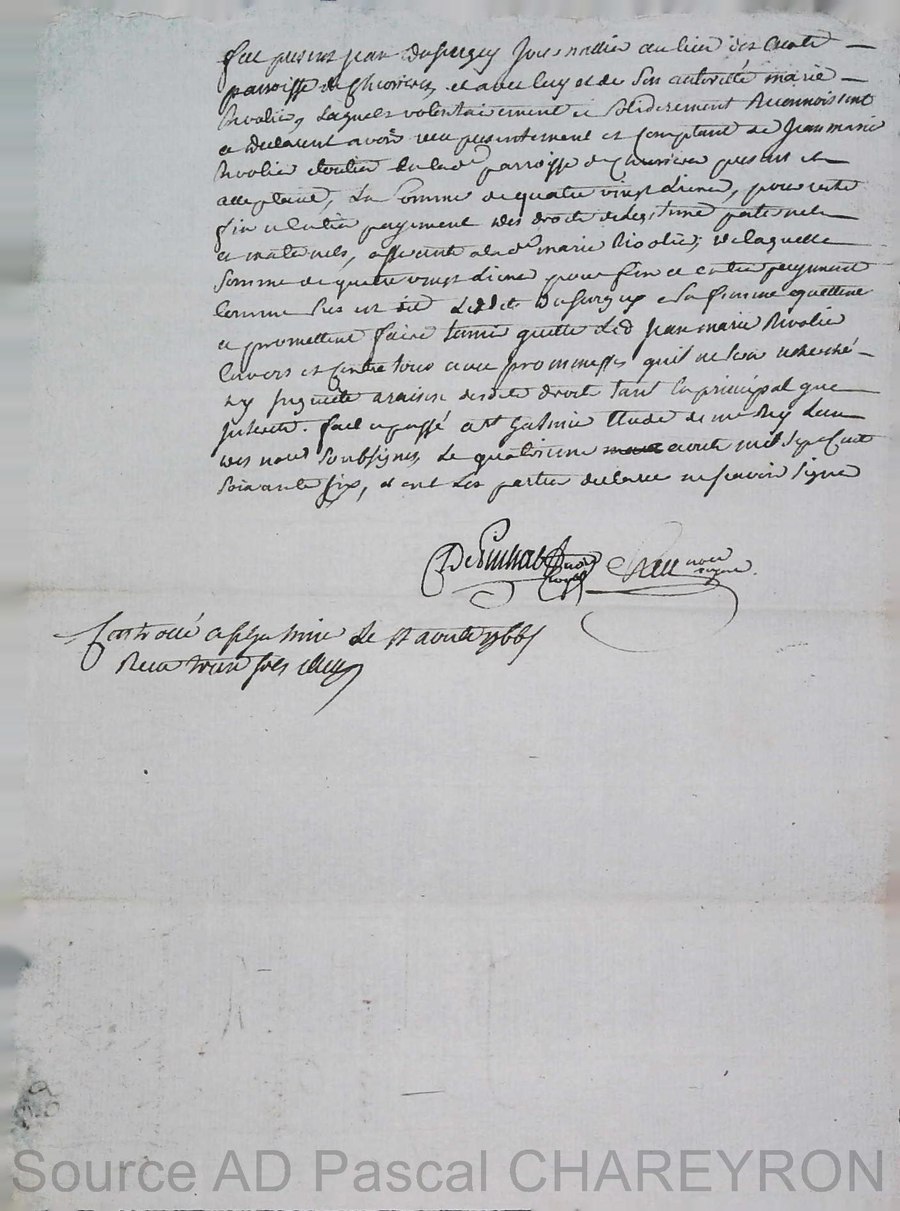 fut present jean dufurgey journallier au lieu des
parroisse de et avec luy et de son authorité marie
Rivolier, laquels volontairement et solidairement Reconnoissent
et declarent avoir receu presentement et comptant de Jean marie
Rivolier de lad.e parroisse de present et
acceptant, La somme de quatre vingt dix , pour reste
fin et entier payement des droits de legitime paternels
et maternels, a lad.e marie Rivolier; de laquelle
somme de quatre vingt dix pour fin et entier payement
comme sus est dit Led. dufurgey et sa femme quittent
et promettent faire tenir quitte led. Jean marie Rivolier
envers et contre tous avec promesses qu'il ne sera recherché
ny inquieté a raison desdits droits tant en principal que
interets. fait et passé a st Galmier Etude de me Rey L'un
des nores soubsignes, Le quatorzieme aoust mil sept cent
soixante six, et ont les parties declaré ne scavoir signer
nore royal
nore royal
Controllé a st Galmier Le aoust 1766
Receu sols
Source AD Pascal CHAREYRON